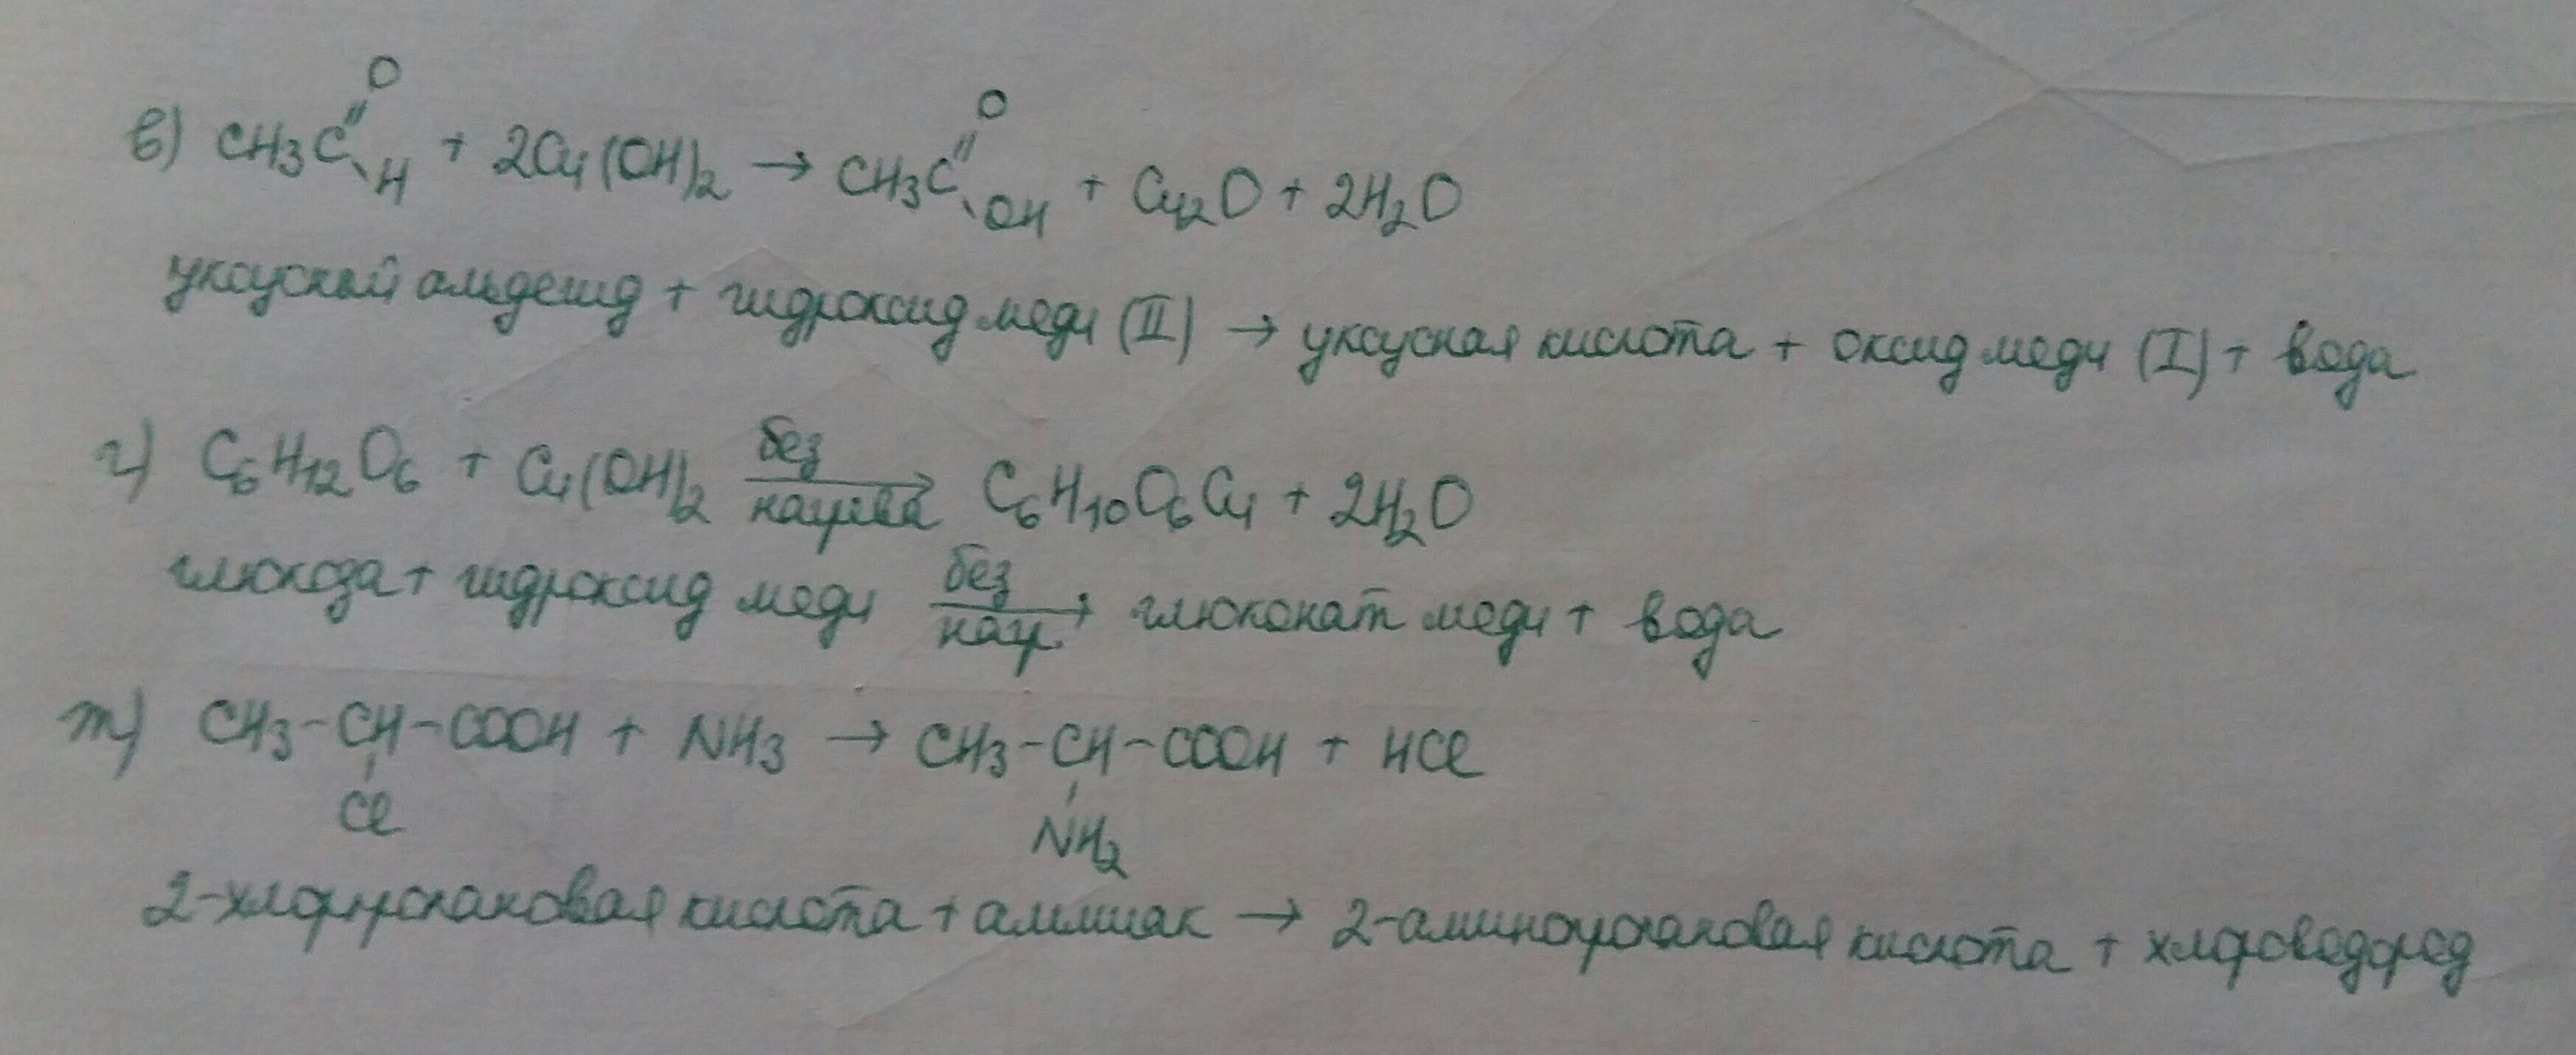 в) CH3C(=O)H + 2Cu(OH)2 → CH3C(=O)OH + Cu2O + 2H2O
уксусный альдегид + гидроксид меди (II) → уксусная кислота + оксид меди (I) + вода
г) C6H12O6 + Cu(OH)2 без нагрева → C6H10O6Cu + 2H2O
глюкоза + гидроксид меди без нагр. → глюконат меди + вода
т) CH3-CH-COOH + NH3 → CH3-CH-COOH + HCl
Cl NH2
2-хлорпропановая кислота + аммиак → 2-аминопропановая кислота + хлороводород